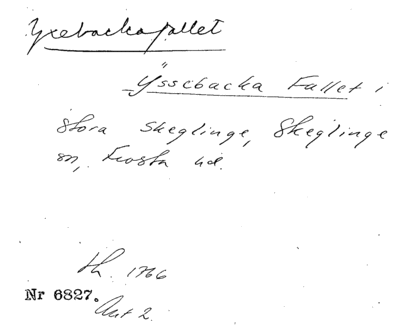 Yxebackafallet
Ÿssebacka Fallet i
Stora Skeglinge, Skeglinge
sn, Frosta hd.
sh. 1766
Nr 6827.
Akt 2.